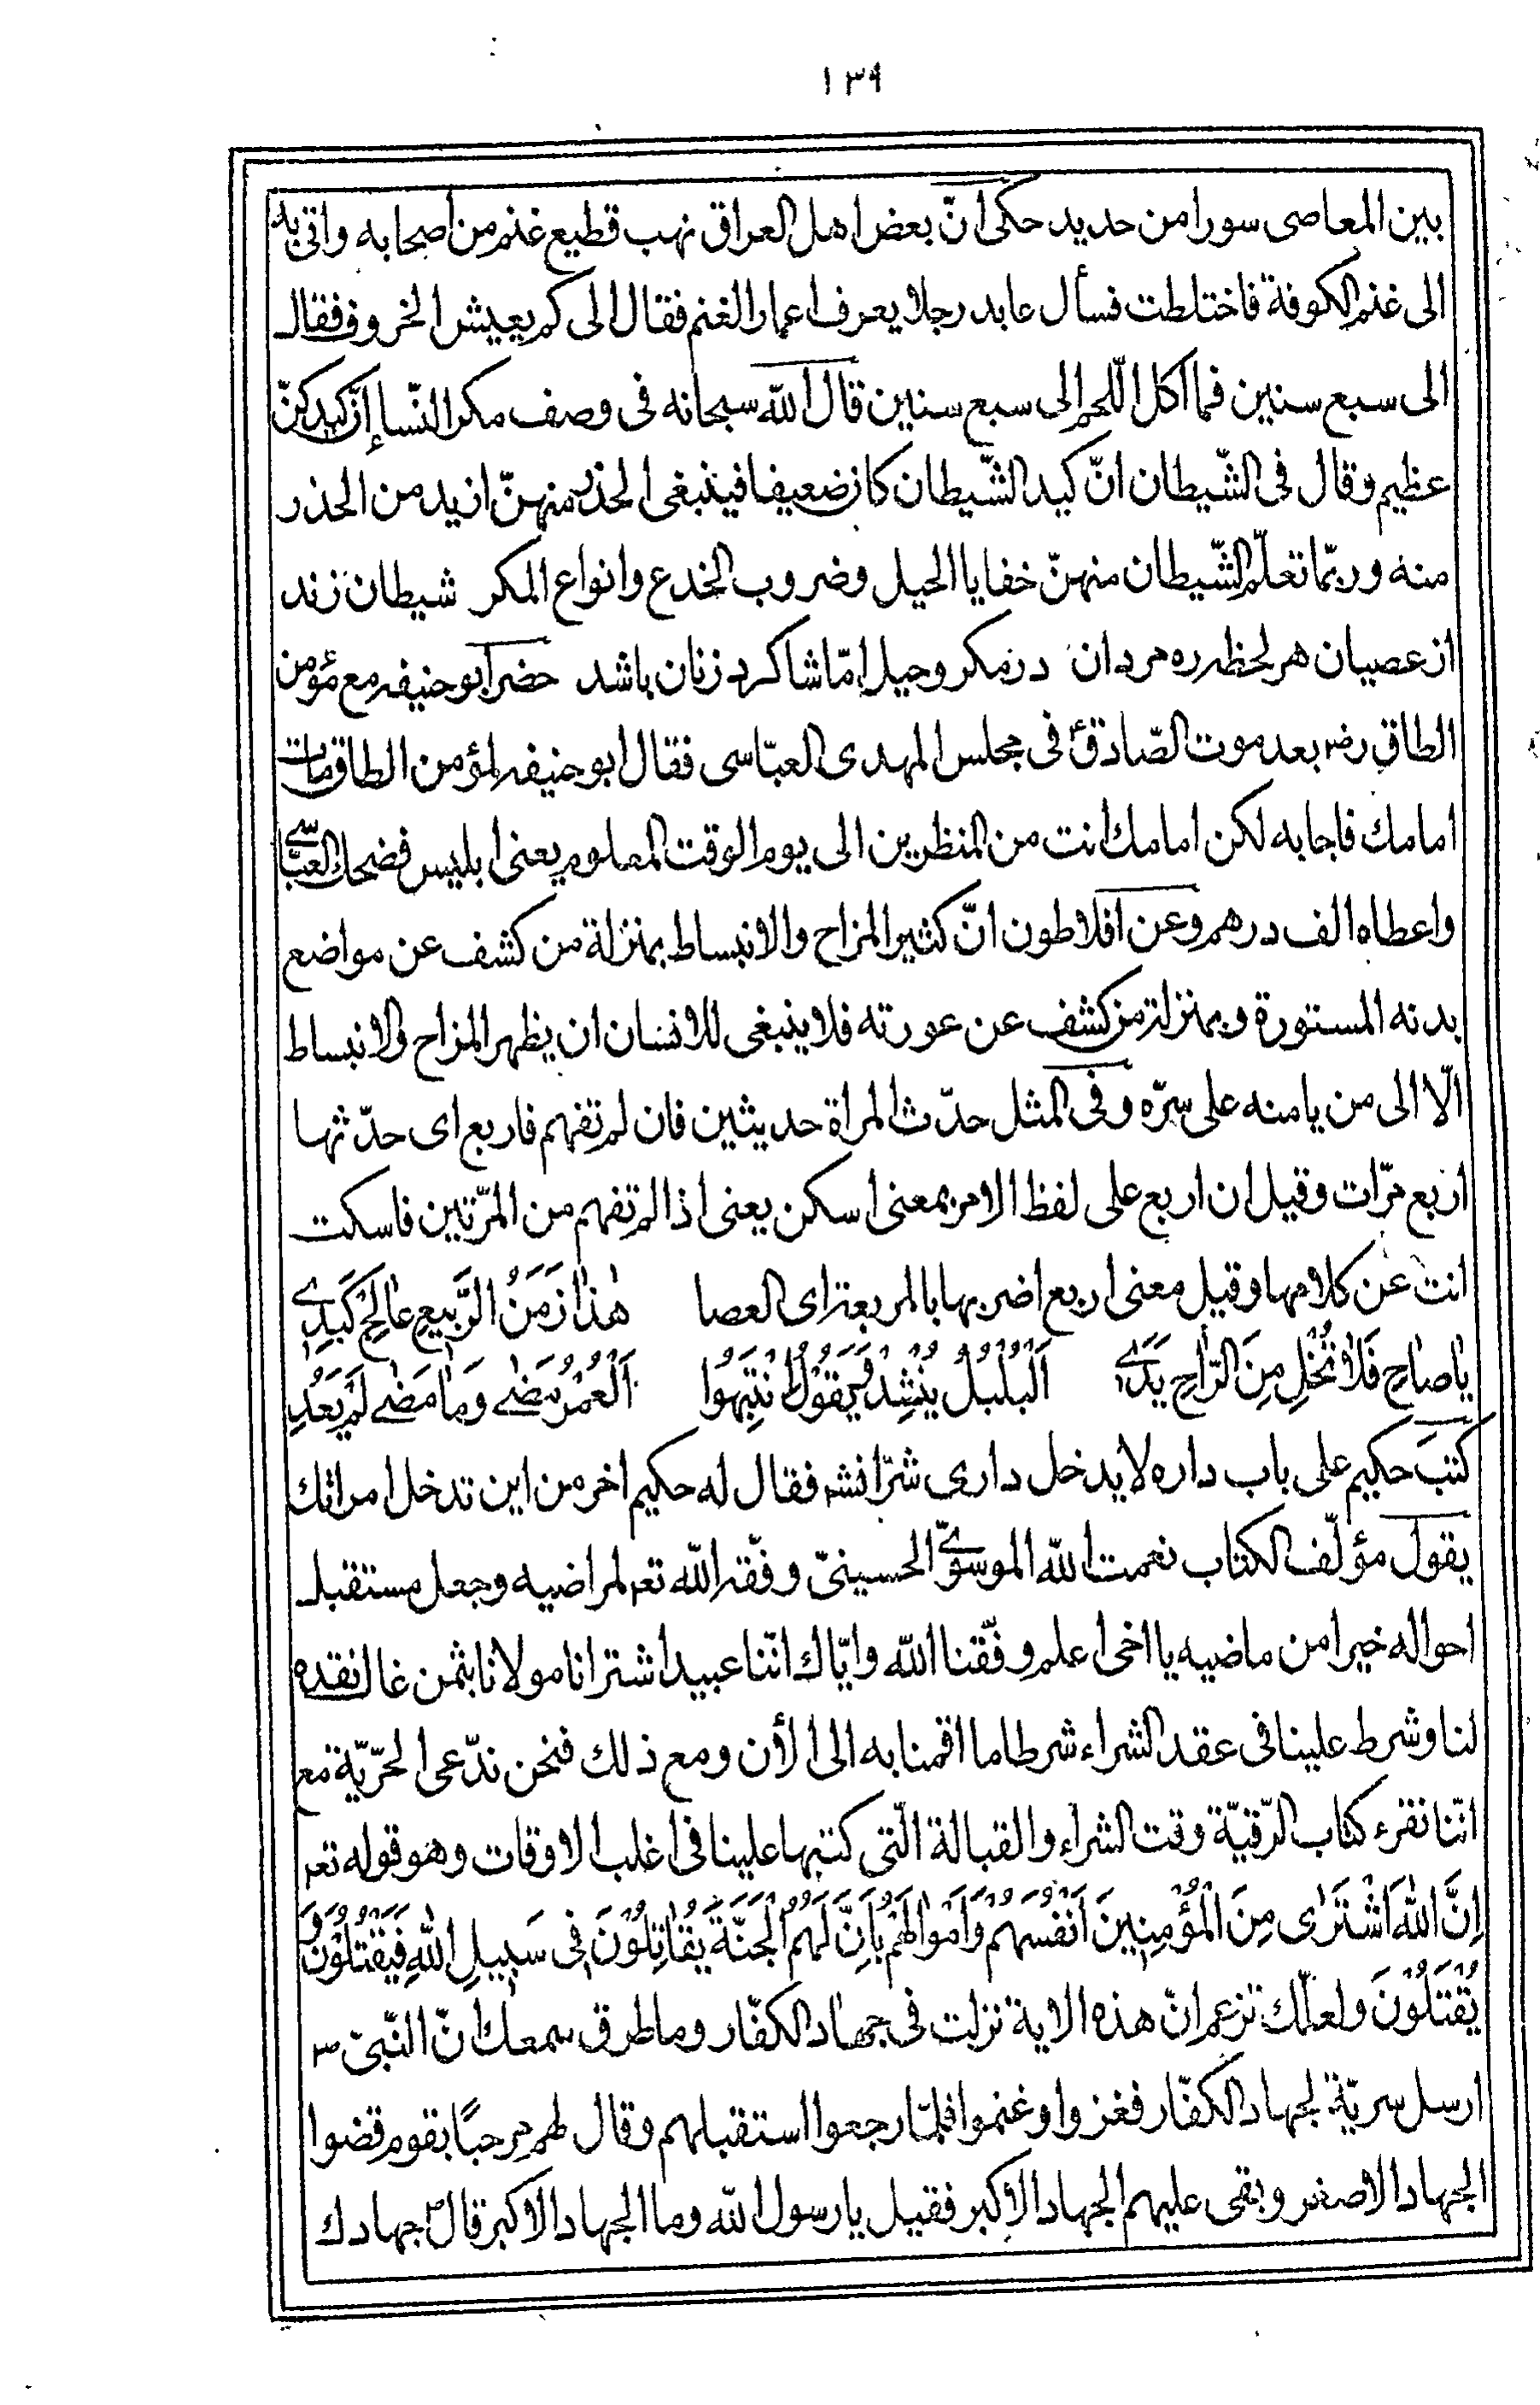 ١٣٩
بين المعاصى سورا من حديد حكى انّ بعض اهل العراق نهب قطيع غنم من اصحابه واتى به
الى غنم الكوفة فاختلطت فسأل عابد رجلا يعرف اعمار الغنم فقال الى كم يعيش الخروف فقال
الى سبع سنين فما اكل اللّحم الى سبع سنين قال اللّه سبحانه فى وصف مكر النّساء إنّ كيدكنّ
عظيم وقال فى الشّيطان انّ كيد الشّيطان كان ضعيفا فينبغى الحذر منهنّ ازيد من الحذر
منه وربّما تعلّم الشّيطان منهنّ خفايا الحيل وضروب الخدع وانواع المكر شيطان زند
از عصيان هر لحظه ره مردان در مكر وحيل امّا شاكرد زنان باشد حضر ابو حنيفه مع مؤمن
الطاق رض بعد موت الصّادق ع فى مجلس المهدى العبّاسى فقال ابو حنيفه لمؤمن الطاق مات
امامك فاجابه لكن امامك انت من المنظرين الى يوم الوقت المعلوم يعنى ابليس فضحك العبّاسى
واعطاه الف درهم وعن افلاطون انّ كثير المزاح والانبساط بمنزلة من كشف عن مواضع
بدنه المستورة وبمنزلة من كشف عن عورته فلا ينبغى للانسان ان يظهر المزاح والانبساط
الّا الى من يامنه على سرّه وفى المثل حدّث المراة حديثين فان لم تفهم فاربع اى حدّثها
اربع مرّات وقيل ان اربع على لفظ الامر بمعنى اسكن يعنى اذا لم تفهم من المرّتين فاسكت
انت عن كلامها وقيل معنى اربع اضربها بالمربعة اى العصا هٰذا زَمَنُ الرَّبيعِ عالِجْ كَبَدِى
يا صاحِ فَلا تُخْلِ مِنَ الرّاحِ يَدَى اَلْبُلْبُلُ يُنْشِدُ وَيَقُولُ انْتَبِهُوا اَلْعُمْرُ مَضٰى وَمٰا مَضٰى لَمْ يَعُدِ
كتب حكيم على باب داره لا يدخل دارى شرّ انشه فقال له حكيم اخر من اين تدخل امراتك
يقول مؤلّف الكتاب نعمت اللّه الموسوىّ الحسينىّ وفّقه اللّه تعم لمراضيه وجعل مستقبل
احواله خيرا من ماضيه يا اخى اعلم وفّقنا اللّه وايّاك انّنا عبيد اشترانا مولانا بثمن غال نقده
لنا وشرط علينا فى عقد الشراء شرطا ما اقمنا به الى الأن ومع ذلك فنحن ندّعى الحرّيّة مع
انّنا نقرء كتاب الرّقيّة وقت الشراء والقبالة الّتى كتبها علينا فى اغلب الاوقات وهو قوله تعم
اِنَّ اللّٰهَ اشْتَرٰى مِنَ الْمُؤْمِنينَ اَنْفُسَهُمْ وَاَمْوٰالَهُمْ بِاَنَّ لَهُمُ الْجَنَّةَ يُقٰاتِلُونَ فى سَبيلِ اللّٰهِ فَيَقْتُلُونَ وَ
يُقْتَلُونَ ولعلّك تزعم انّ هذه الاية نزلت فى جهاد الكفّار وما طرق سمعك انّ النّبىّ ص
ارسل سريّة لجهاد الكفّار فغزوا وغنموا فلمّا رجعوا استقبلهم وقال لهم مرحبًا بقوم قضوا
الجهاد الاصغر وبقى عليهم الجهاد الاكبر فقيل يا رسول اللّه وما الجهاد الاكبر قال ص جهادك